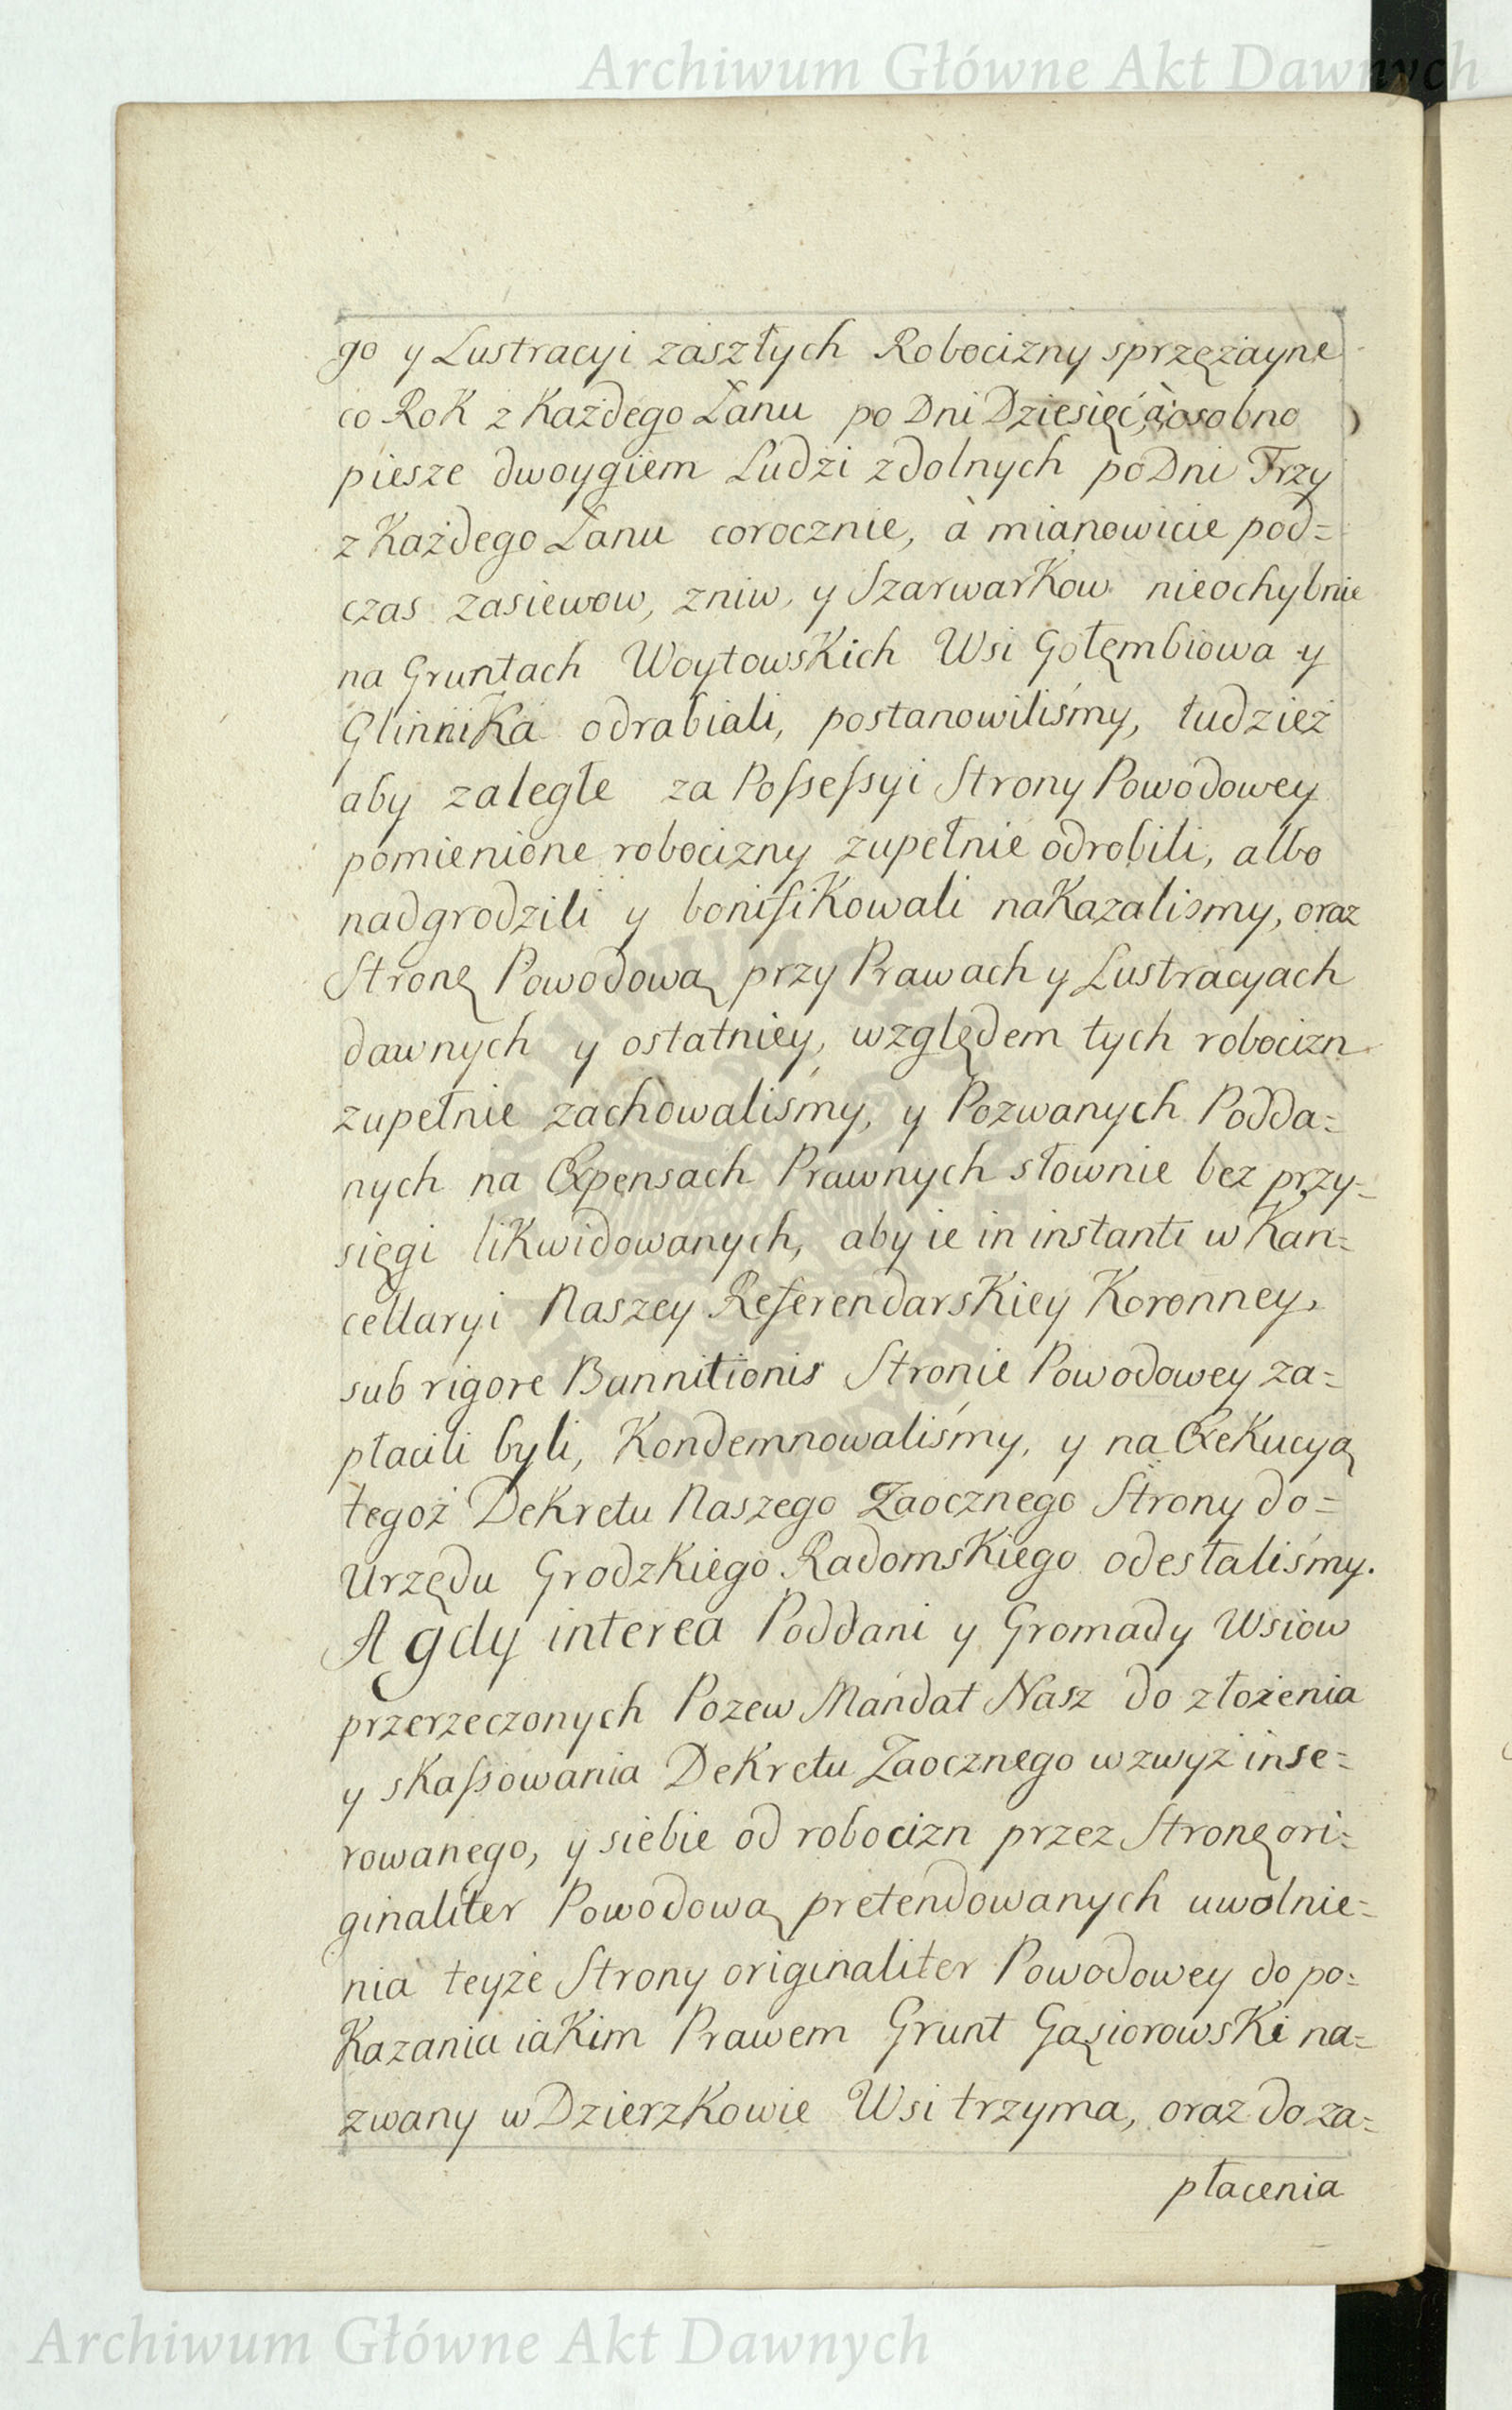 Archiwum Główne Akt Dawnych
go y Lustracyi zaszłych Robocizny sprzężayne
co Rok z Każdego Łanu po Dni Dziesięć, à osobno
piesze dwoygiem Ludzi zdolnych po Dni Trzy
z Każdego Łanu corocznie, à mianowicie pod=
czas zasiewow, zniw, y Szarwarkow nieochybnie
na Gruntach Woytowskich Wsi Gołęmbiowa y
Glinnika odrabiali, postanowiliśmy, tudzież
aby zaległe za Possessyi Strony Powodowey
pomienione robocizny zupełnie odrobili, albo
nadgrodzili y bonifikowali nakazalismy, oraz
Stronę Powodową przy Prawach y Lustracyach
dawnych y ostatniey, względem tych robocizn
zupełnie zachowaliśmy, y Pozwanych Podda=
nych na Expensach Prawnych słownie bez przy=
sięgi likwidowanych, aby ie in instanti w Kan=
cellaryi Naszey Referendarskiey Koronney,
sub rigore Bannitionis Stronie Powodowey za=
płacili byli, Kondemnowaliśmy, y na Exekucyą
tegoż Dekretu Naszego Zaocznego Strony do=
Urzędu Grodzkiego Radomskiego odesłaliśmy.
A gdy interea Poddani y Gromady Wsiow
przerzeczonych Pozew Mandat Nasz do złożenia
y skassowania Dekretu Zaocznego wzwyż inse=
rowanego, y siebie od robocizn przez Stronę ori=
ginaliter Powodową pretendowanych uwolnie=
nia teyże Strony originaliter Powodowey do po=
kazania iakim Prawem Grunt Gąsiorowski na=
zwany w Dzierzkowie Wsi trzyma, oraz do za=
płacenia
Archiwum Główne Akt Dawnych